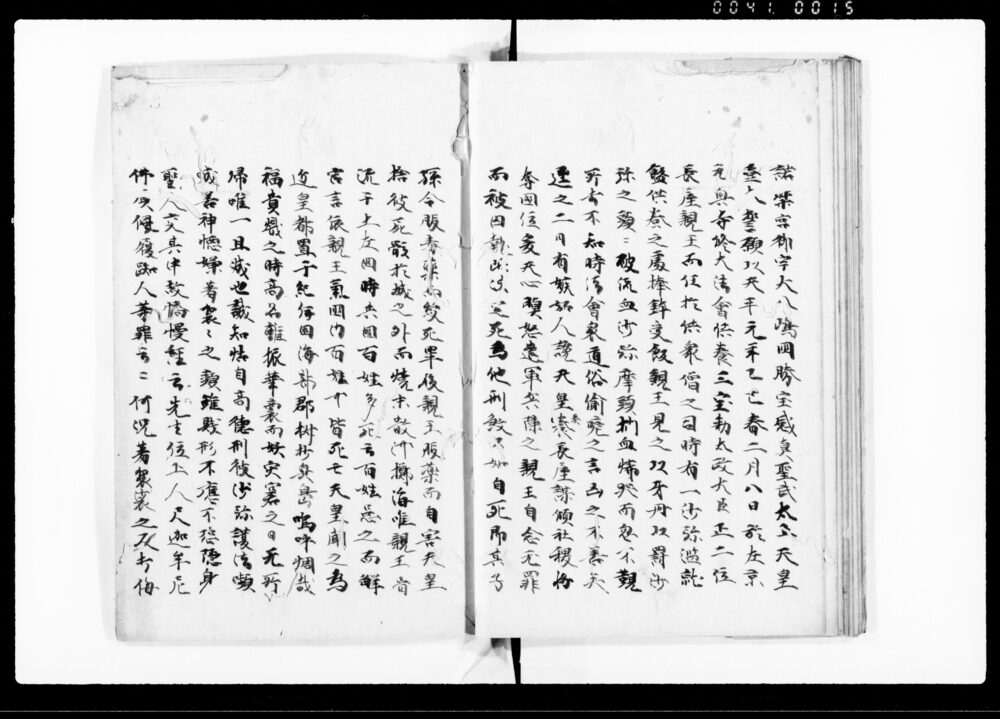 諾樂宮御宇大八嶋國勝宝感真聖武太上天皇
發大誓願以天平元年己巳春二月八日於左京
元興寺修大法會供養三宝勅太政大臣正二位
長屋親王而任於供衆僧之司時有一沙弥濫就
餝供養之處捧鉢受飯親王見之以牙冊以罸沙
弥之頭〻破流血沙弥摩頭捫血悕哭而忽不覲
所去不知時法會衆道俗偷𠴨之言凶之不善矣
逕之二日有嫉妬人讒天皇奏長屋謀傾社稷将
奪國位爰天心瞋怒遣軍兵陣之親王自念无罪
而被囚執此決定死為他刑殺不如自死即其子
孫令服毒藥而絞死畢後親王服藥而自害天皇
捨彼死骸於城之外而燒末散河擲海唯親王骨
流于土左國時其國百姓多死云百姓患之而解
官言依親王氣國内百姓可皆死亡天皇聞之為
近皇都置于紀伊國海部郡椒抄奥嶋嗚呼惆哉
福貴熾之時高名雖振華裔而妖灾窘之日无所
帰唯一旦滅也誠知怙自高徳刑彼沙弥護法嚬
慼善神憎嫌著袈〻之類雖賤形不應不恐隱身
聖人交其中故憍慢經云先生位上人尺迦牟尼
佛頂侵履跏人等罪云〻何況著袈裟之人打侮